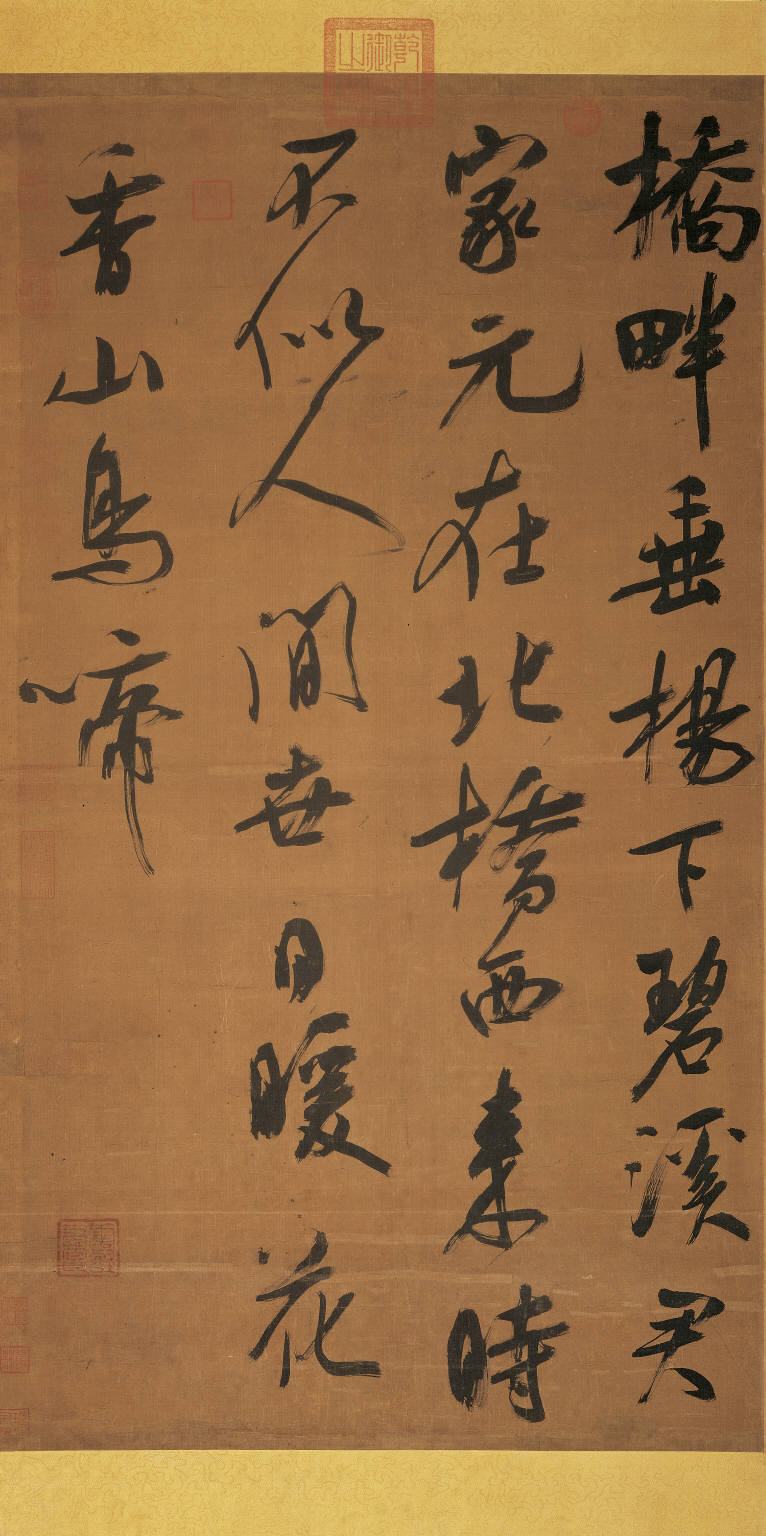 橋畔垂楊下碧溪君
家元在北橋西来時
不似人間世日暖花
香山鳥啼